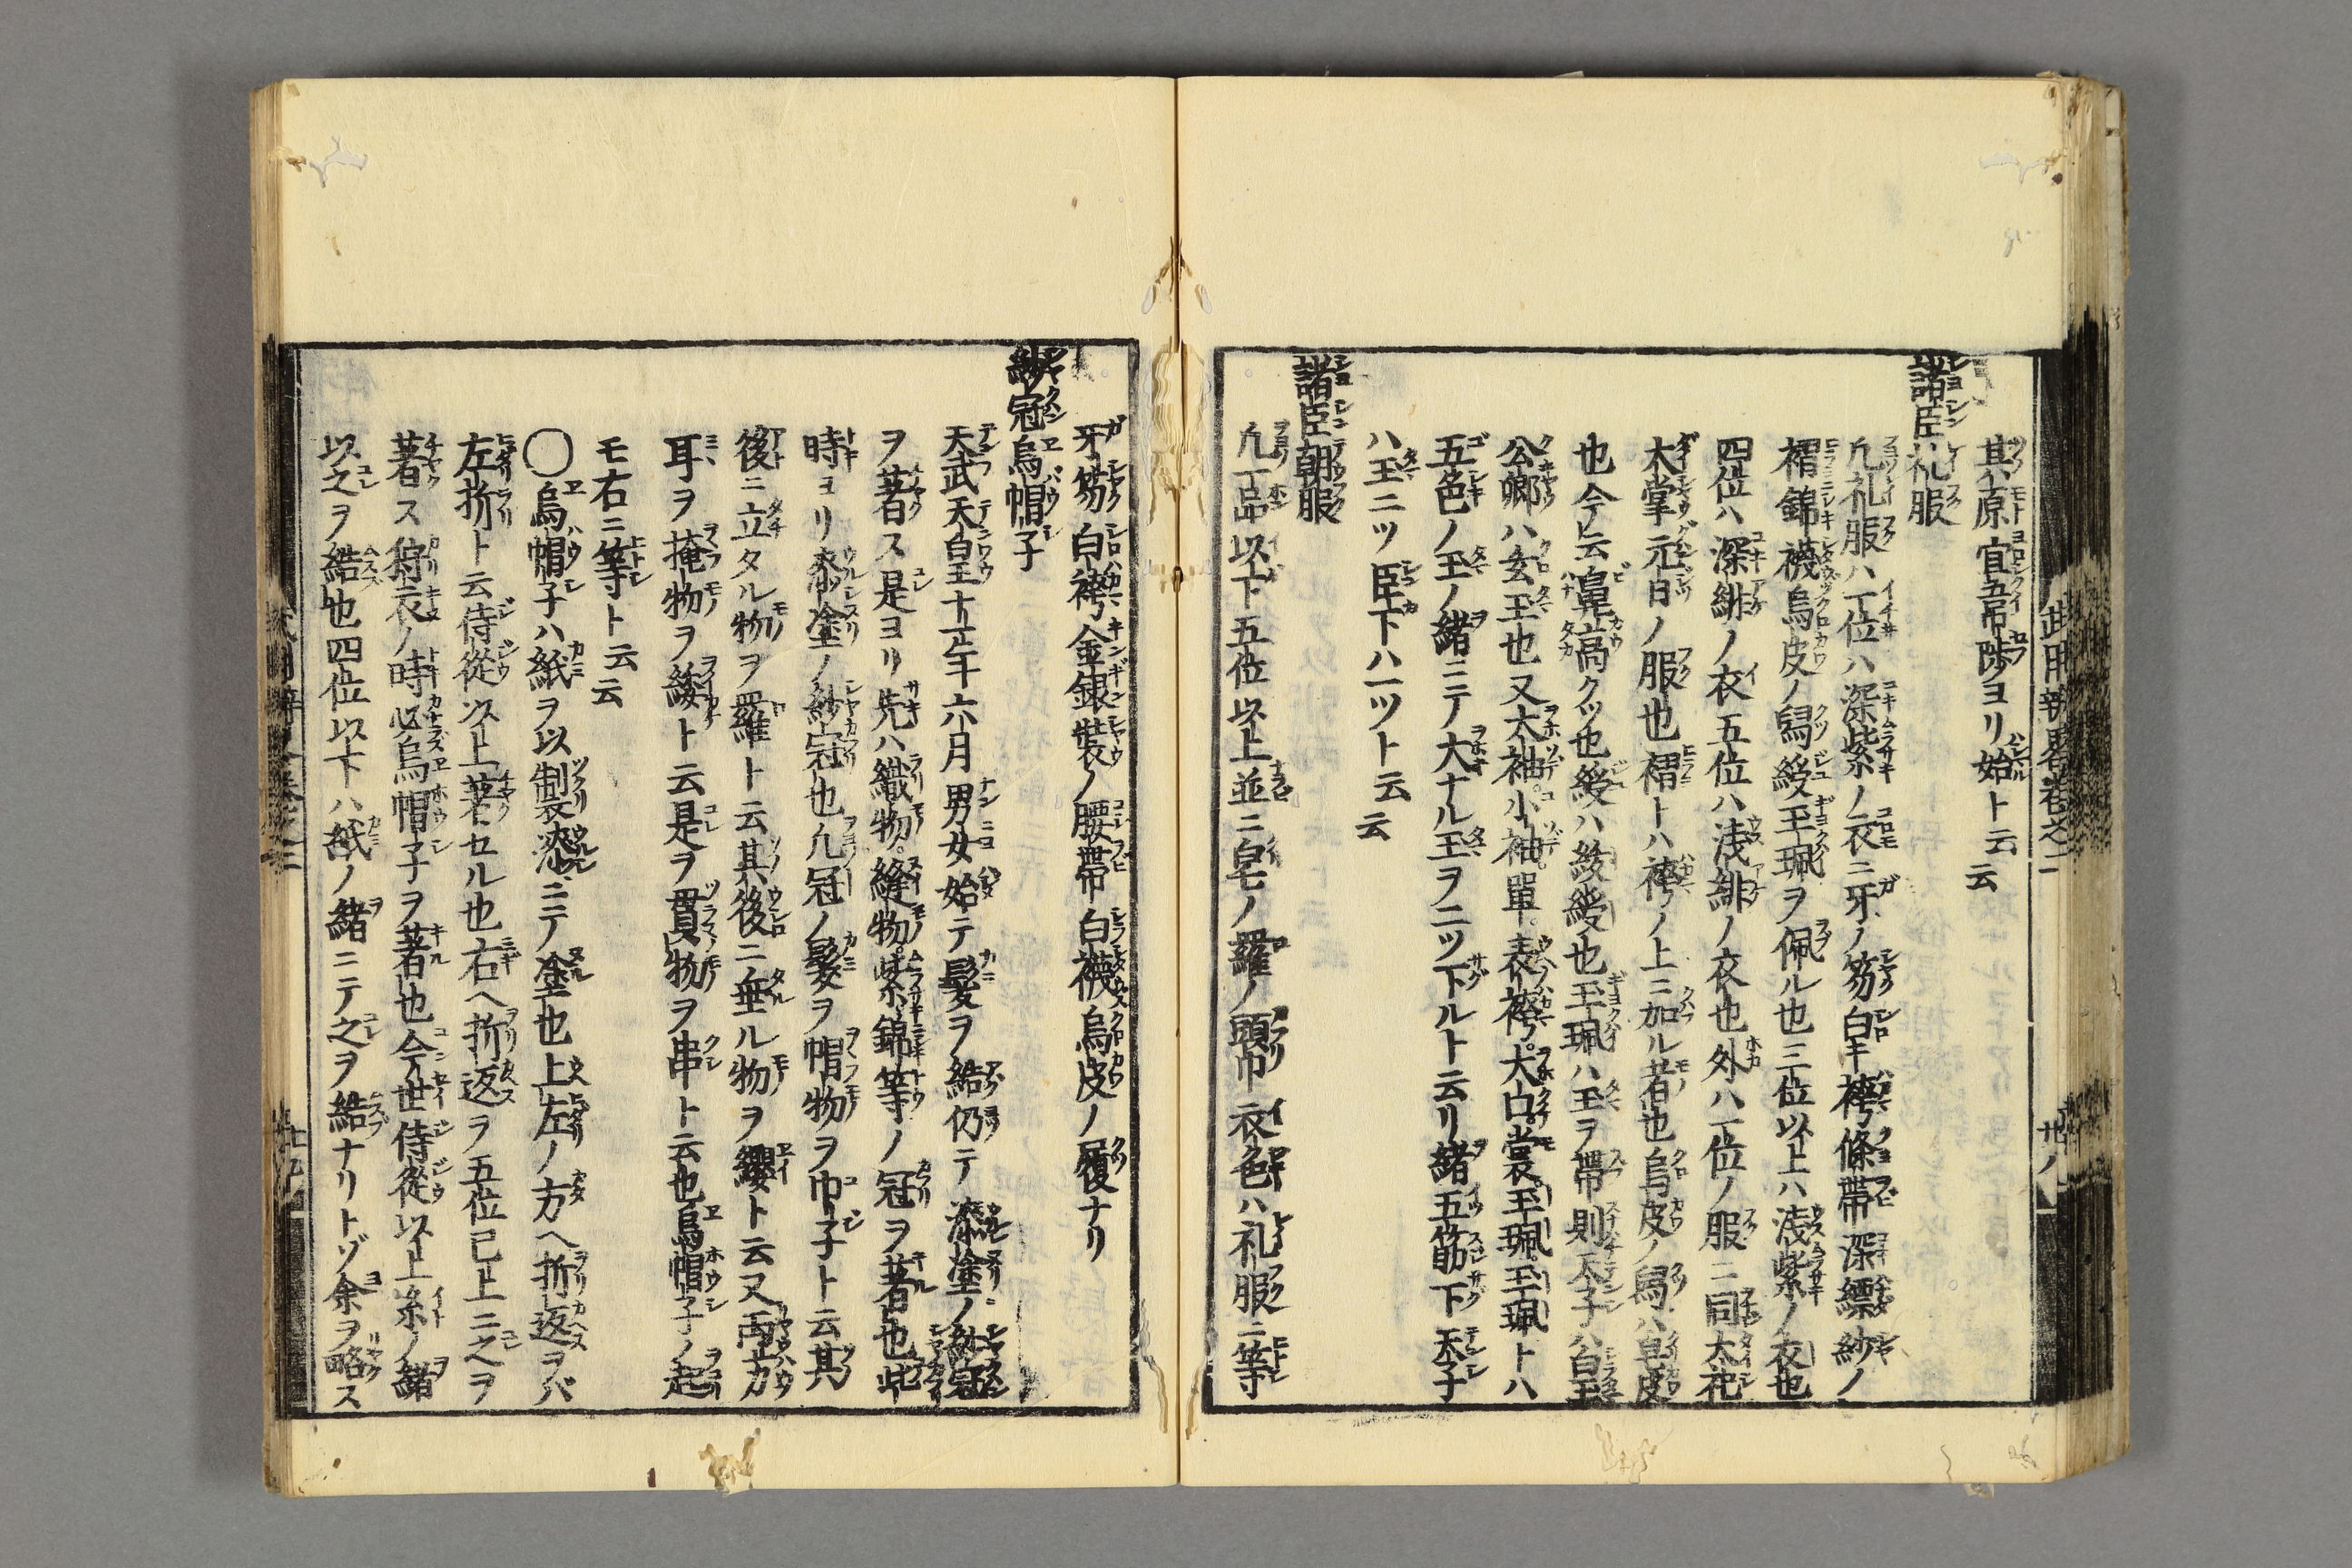 其原宜五帝時ヨリ始ト云云
諸臣礼服
凡礼服ハ一位ハ深紫ノ衣ニ牙ノ笏白キ袴條帯深縹紗ノ
褶錦襪烏皮ノ舄綬玉珮ヲ佩ル也三位以上ハ浅紫ノ衣也
四位ハ深緋ノ衣五位ハ浅緋ノ衣也外ハ一位ノ服ニ同大祀
大掌元日ノ服也褶トハ袴ノ上ニ加ル者也烏皮ノ舄ハ皂皮
也今云鼻高クツ也綬ハ綬也玉珮ハ玉ヲ帯則天子ハ白玉
公卿ハ玄玉也又大袖小袖單表袴大口裳玉珮玉珮トハ
五色ノ玉ノ緒ニテ大ナル玉ヲ二ツ下ルト云リ緒五筋下天子
ハ玉ニツ臣下ハ一ツト云云
諸臣朝服
凡一品以下五位以上並ニ皂ノ羅ノ頭巾衣色ハ礼服ニ等
武用辨畧巻之二
廿八
牙笏白袴金銀装ノ腰帯白襪烏皮ノ履ナリ
紗冠烏帽子
天武天皇十一年六月男女始テ髪ヲ結仍テ漆塗ノ紗冠
ヲ著ス是ヨリ先ハ織物縫物紫錦等ノ冠ヲ著也此
時ヨリ漆塗ノ紗冠也凡冠ノ髪ヲ帽物ヲ巾子ト云其
後ニ立タル物ヲ羅ト云其後ニ垂ル物ヲ纓ト云又両方
耳ヲ掩物ヲ緌ト云是ヲ貫物ヲ串ト云也烏帽子ノ起
モ右ニ等ト云云
〇烏帽子ハ紙ヲ以製漆ニテ塗也上左ノ方ヘ折返ヲバ
左折ト云侍從以上著セル也右ヘ折返ヲ五位已上ニ之ヲ
著ス狩衣ノ時必烏帽子ヲ著也今世侍從以上糸ノ緒
以之ヲ結也四位以下ハ紙ノ緒ニテ之ヲ結ナリトゾ余ヲ略ス